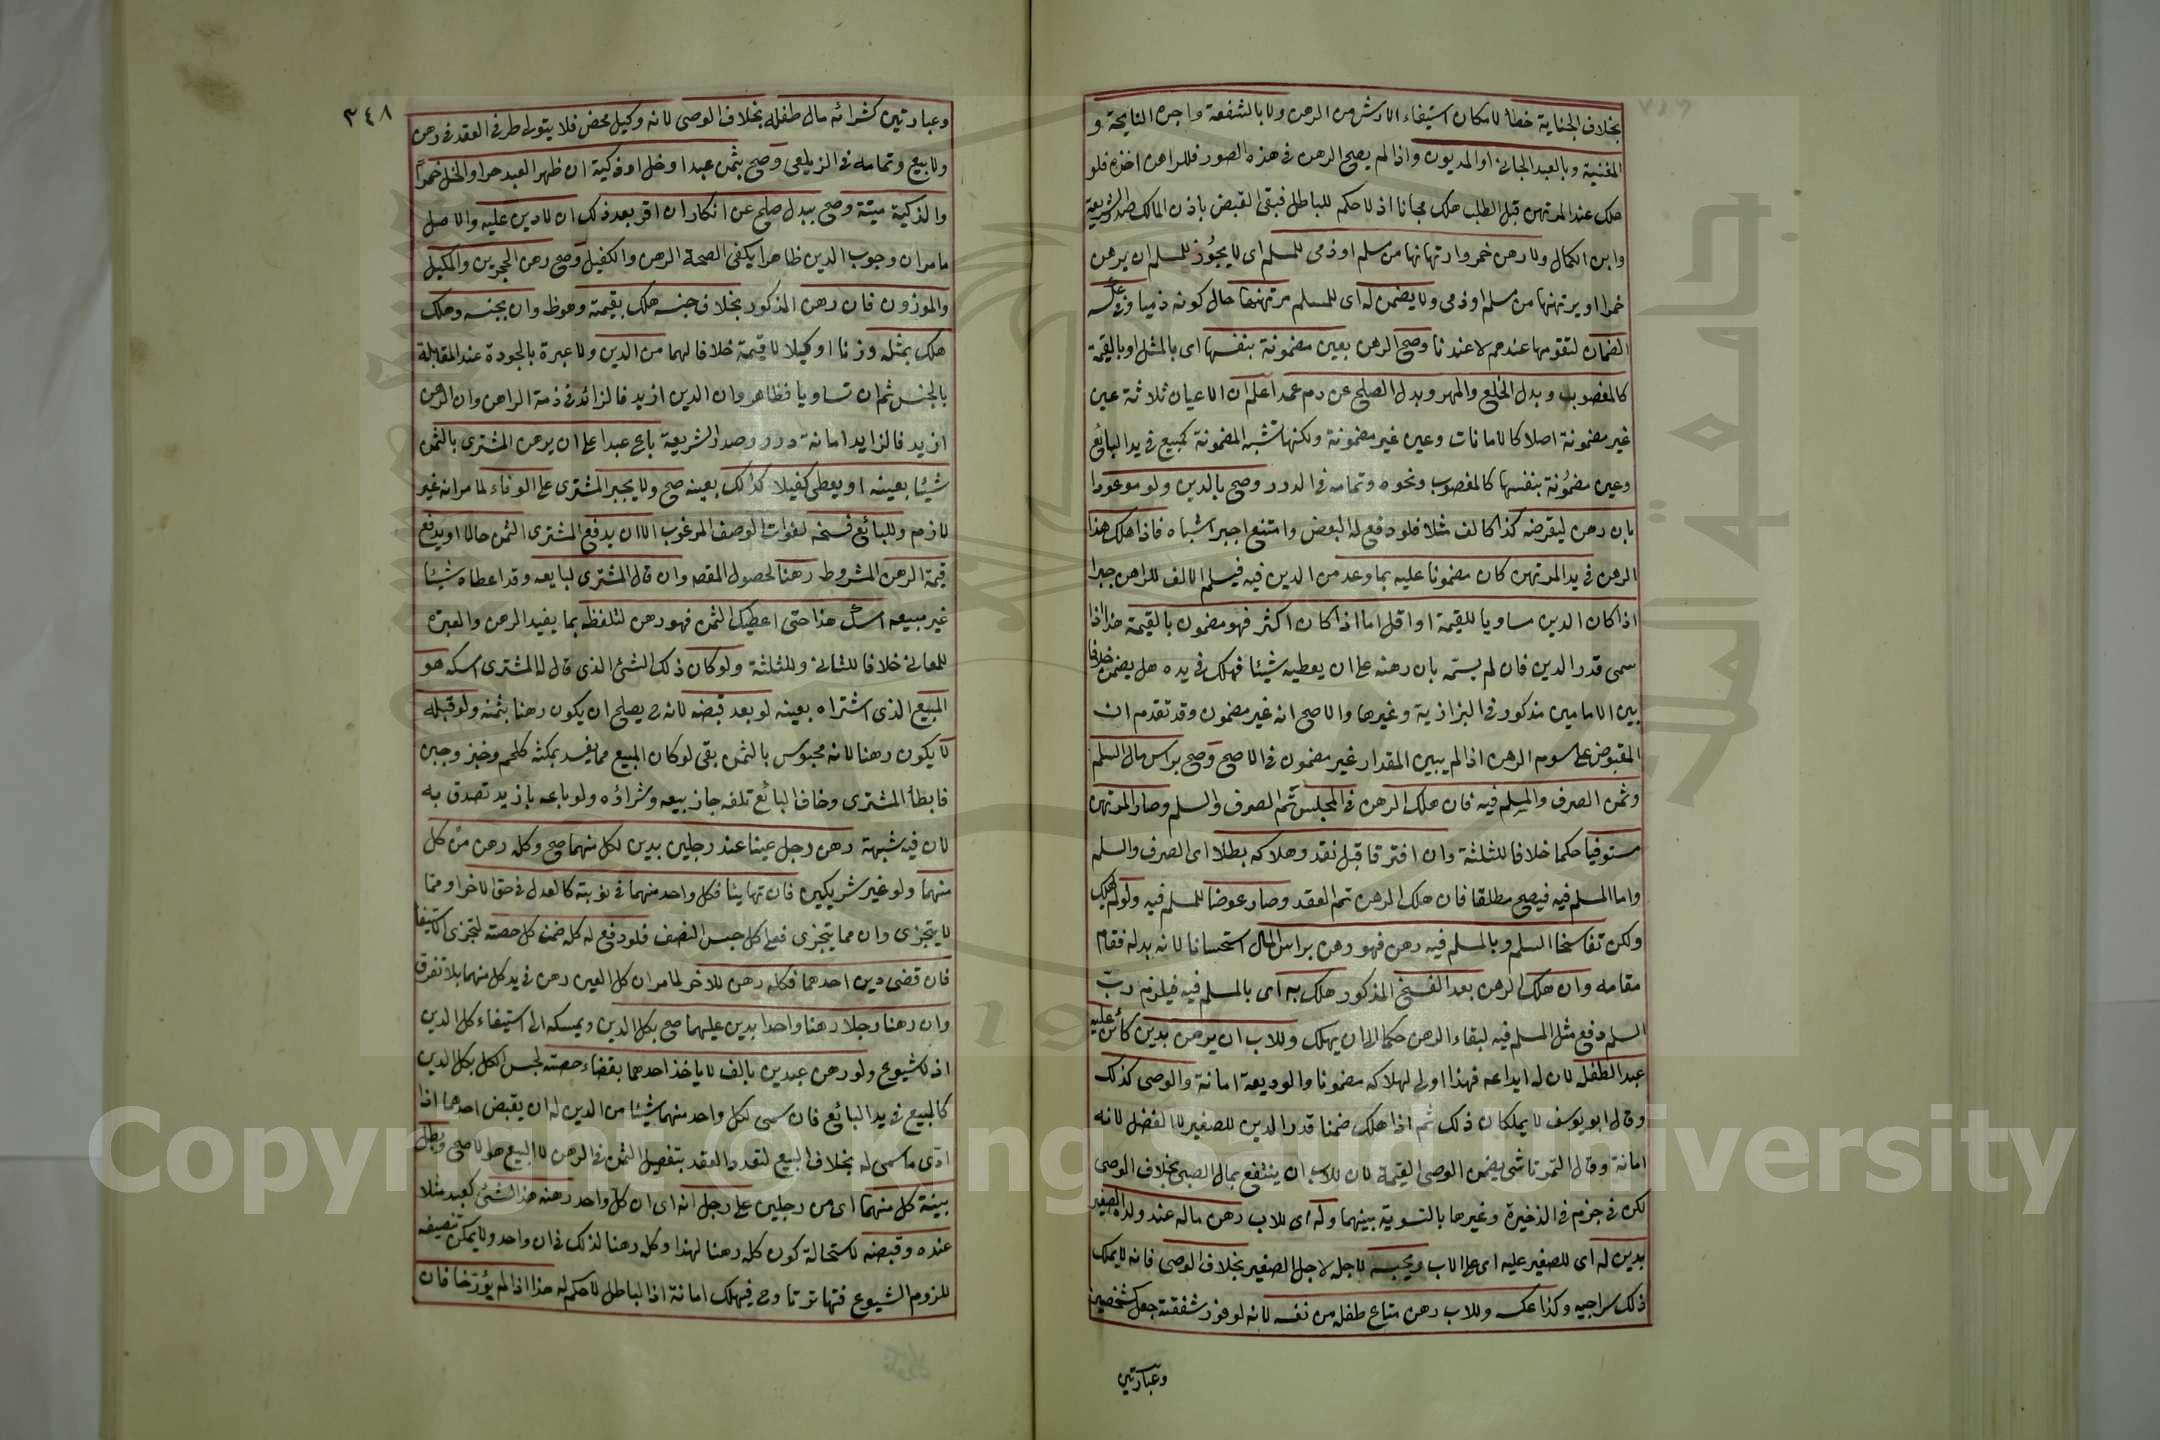 بخلاف الجناية خطأ لامكان استيفاء الارش من الرهن ولا بالشفعة واجرة النايحة و
المغنية وبالعبد الجاني او المديون واذا لم يصح الرهن في هذه الصور فللراهن اخذه فلو
هلك عند المرتهن قبل الطلب هلك مجانا اذ لا حكم للباطل فبقى القبض باذن المالك صدر الشريعة
وابن الكمال ولا رهن خمر وارتهانها من مسلم او ذمى للمسلم اى لا يجوز للمسلم ان يرهن
خمرا او يرتهنها من مسلم او ذمى ولا يضمن له اى للمسلم مرتهنها حال كونه ذميا وفي عكسه
الضمان لتقومها عندهم لا عندنا وصح الرهن بعين مضمونة بنفسها اى بالمثل او بالقيمة
كالمغصوب وبدل الخلع والمهر وبدل الصلح عن دم عمد اعلم ان الاعيان ثلاثة عين
غير مضمونة اصلا كالامانات وعين غير مضمونة ولكنها تشبه المضمونة كمبيع في يد البائع
وعين مضمونة بنفسها كالمغصوب ونحوه وتمامه في الدرر وصح بالدين ولو موعودا
بان رهن ليقرضه كذا كالف مثلا فلو دفع له البعض وامتنع اجبر اشباه فاذا هلك هذا
الرهن في يد المرتهن كان مضمونا عليه بما وعد من الدين فيه فيسلم الالف للراهن جبرا
اذا كان الدين مساويا للقيمة او اقل اما اذا كان اكثر فهو مضمون بالقيمة هذا اذا
سمى قدر الدين فان لم يسمه بان رهنه على ان يعطيه شيئا فهلك في يده هل يضمن خلافا
بين الامامين مذكور في البزازية وغيرها والاصح انه غير مضمون وقد تقدم ان
المقبوض على سوم الرهن اذا لم يبين المقدار غير مضمون في الاصح وصح براس مال السلم
وثمن الصرف والمسلم فيه فان هلك الرهن في المجلس تم الصرف والسلم وصار المرتهن
مستوفيا حكما خلافا للثلثة وان افترقا قبل نقد وهلاكه بطلا اى الصرف والسلم
واما المسلم فيه فيصح مطلقا فان هلك الرهن تم العقد وصار عوضا للمسلم فيه ولو لم يهلك
ولكن تفاسخا السلم وبالمسلم فيه رهن فهو رهن براس المال استحسانا لانه بدله فقام
مقامه وان هلك الرهن بعد الفسخ المذكور هلك به اى بالمسلم فيه فيلزم رب
السلم دفع مثل المسلم فيه لبقاء الرهن حكما الى ان يهلك وللاب ان يرهن بدين كائن عليه
عبدا لطفله لان له ايداعه فهذا اولى لهلاكه مضمونا والوديعة امانة والوصى كذلك
وقال ابو يوسف لا يملكان ذلك ثم اذا هلك ضمنا قدر الدين للصغير لا الفضل لانه
امانة وقال التمرتاشى يضمن الوصى القيمة لان للاب ان ينتفع بمال الصبى بخلاف الوصى
لكن في جزم في الذخيرة وغيرها بالتسوية بينهما وله اى للاب رهن ماله عند ولده الصغير
بدين له اى للصغير عليه اى على الاب ويحبسه لاجله لاجل الصغير بخلاف الوصى فانه لا يملك
ذلك سراجيه وكذا عكسه وللاب رهن متاع طفله من نفسه لانه لوفور شفقته جعل كشخصين
وعبارتين
٣٤٨
وعبارتين كشرائه مال طفله بخلاف الوصى لانه وكيل محض فلا يتولى طرفى العقد في رهن
ولا بيع وتمامه في الزيلعى وصح بثمن عبد او خل او ذكية ان ظهر العبد حرا والخل خمرا
والذكية ميتة وصح ببدل صلح عن انكار ان اقر بعد ذلك ان لا دين عليه والاصل
ما مر ان وجوب الدين ظاهرا يكفى لصحة الرهن والكفيل وصح رهن الحجرين والمكيل
والموزون فان رهن المذكور بخلاف جنسه هلك بقيمته وهو ظ وان بجنسه وهلك
هلك بمثله وزنا او كيلا لا قيمة خلافا لهما من الدين ولا عبرة بالجودة عند المقابلة
بالجنس ثم ان تساويا فظاهر وان الدين ازيد فالزائد في ذمة الراهن وان الرهن
ازيد فالزايد امانة درر وصدر الشريعة باع عبدا على ان يرهن المشترى بالثمن
شيئا بعينه او يعطى كفيلا كذلك بعينه صح ولا يجبر المشترى على الوفاء لما مر انه غير
لازم وللبائع فسخه لفوات الوصف المرغوب الا ان يدفع المشترى الثمن حالا او يدفع
قيمة الرهن المشروط رهنا لحصول المقصو وان قال المشترى لبايعه وقد اعطاه شيئا
غير مبيعه امسك هذا حتى اعطيك الثمن فهو رهن لتلفظه بما يفيد الرهن والعبرة
للمعانى خلافا للثانى وللثلثة ولو كان ذلك الشئ الذى قال له المشترى امسكه هو
المبيع الذى اشتراه بعينه لو بعد قبضه لانه ح يصلح ان يكون رهنا بثمنه ولو قبله
لا يكون رهنا لانه محبوس بالثمن بقى لو كان المبيع مما يفسد بمكثه كلحم وخبز وجبن
فابطأ المشترى وخاف البائع تلفه جاز بيعه وشراؤه ولو باعه بازيد تصدق به
لان فيه شبهة رهن رجل عينا عند رجلين بدين لكل منهما صح وكله رهن من كل
منهما ولو غير شريكين فان تهايئا فكل واحد منهما في نوبته كالعدل في حق الاخر او مما
لا يتجزى وان مما يتجزى فعلى كل حبس النصف فلو دفع له كله ضمن كل حصته لتجزى الاستيفاء
فان قضى دين احدهما فكله رهن للاخر لما مر ان كل العين رهن في يد كل منهما بلا تفرق
وان رهنا رجلا رهنا واحدا بدين عليهما صح بكل الدين ويمسكه الى استيفاء كل الدين
اذ لا شيوع ولو رهن عبدين بالف لا ياخذ احدهما بقضاء حصته لحبس الكل بكل الدين
كالمبيع في يد البائع فان سمى لكل واحد منهما شيئا من الدين له ان يقبض احدهما اذا
ادى ما سمى له بخلاف البيع لتعدد العقد بتفصيل الثمن في الرهن لا البيع هو الاصح وبطل
بينة كل منهما اى من رجلين على رجل انه اى ان كل واحد رهنه هذا الشئ كعبد مثلا
عنده وقبضه لاستحالة كون كله رهنا لهذا وكله رهنا لذلك في ان واحد ولا يمكن تنصيفه
للزوم الشيوع فتهاترتا وح فيهلك امانة اذ الباطل لا حكم له هذا اذا لم يؤرخا فان
Copyright © King Saud University